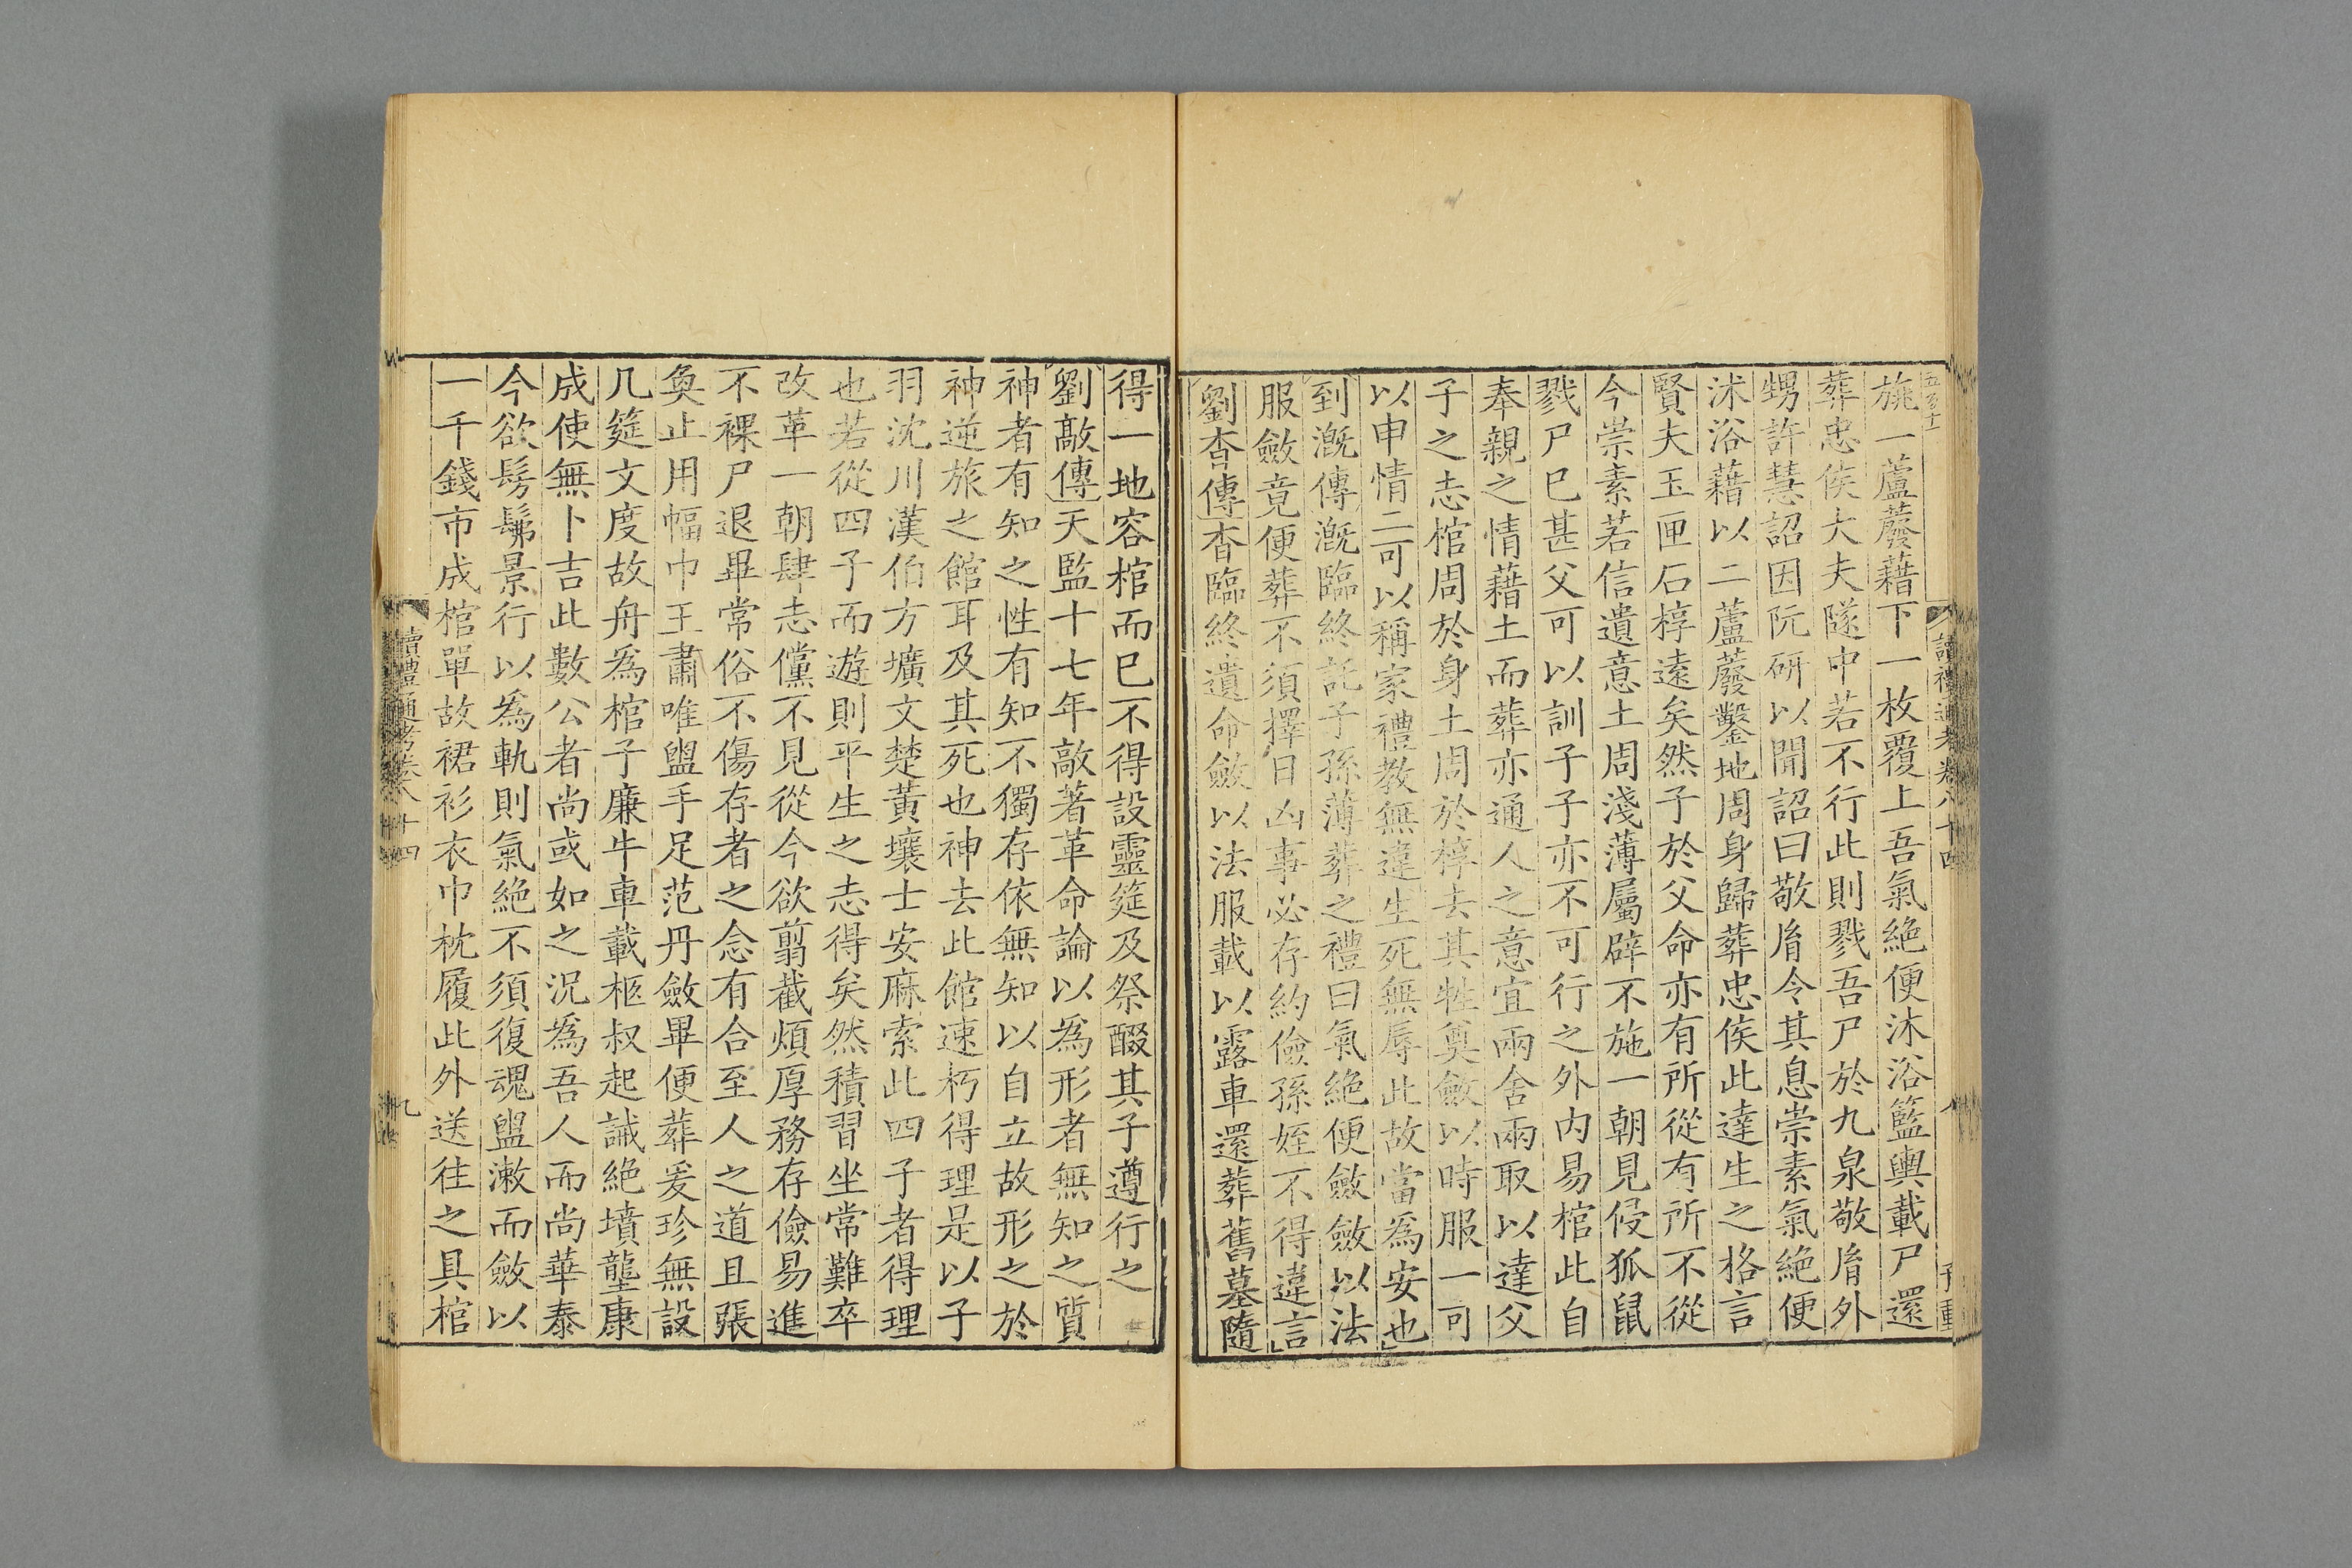 旐一蘆藉下一枚覆上吾氣絶便沐浴籃輿載尸還
葬忠侯大夫隧中若不行此則戮吾尸於九泉敬胤外
甥許慧詔因阮研以聞詔曰敬胤令其息崇素氣絶便
沐浴藉以二蘆鑿地周身歸葬忠侯此達生之格言
賢夫玉匣石椁遠矣然子於父命亦有所從有所不從
今崇素若信遺意土周淺薄屬辟不施一朝見侵狐鼠
戮尸巳甚父可以訓子子亦不可行之外内易棺此自
奉親之情藉土而葬亦通人之意宜兩舍兩取以達父
子之志棺周於身土周於椁去其牲奠斂以時服一可
以申情二可以稱家禮教無違生死無辱此故當為安也
到溉傳溉臨終託子孫薄葬之禮曰氣絶便斂斂以法
服斂竟便葬不須擇日凶事必存約儉孫姪不得違言
劉杳傳杳臨終遺命斂以法服載以露車還葬舊墓隨
得一地容棺而巳不得設靈筵及祭醊其子遵行之
劉敲傳天監十七年敲著革命論以為形者無知之質
神者有知之性有知不獨存依無知以自立故形之於
神逆旅之館耳及其死也神去此館速朽得理是以子
羽沈川漢伯方壙文楚黃壤士安麻索此四子者得理
也若從四子而遊則平生之志得矣然積習坐常難卒
改革一朝肆志儻不見從今欲翦截煩厚務存儉易進
不裸尸退畢常俗不傷存者之念有合至人之道且張
奐止用幅巾王肅唯盥手足范丹斂畢便葬爰珍無設
几筵文度故舟為棺子廉牛車載柩叔起誡絶墳壟康
成使無卜吉此數公者尚或如之況為吾人而尚華泰
今欲髣髴景行以為軌則氣絶不須復魂盥漱而斂以
一千錢市成棺單故裙衫衣巾枕履此外送往之具棺
讀禮通考卷八十四 九